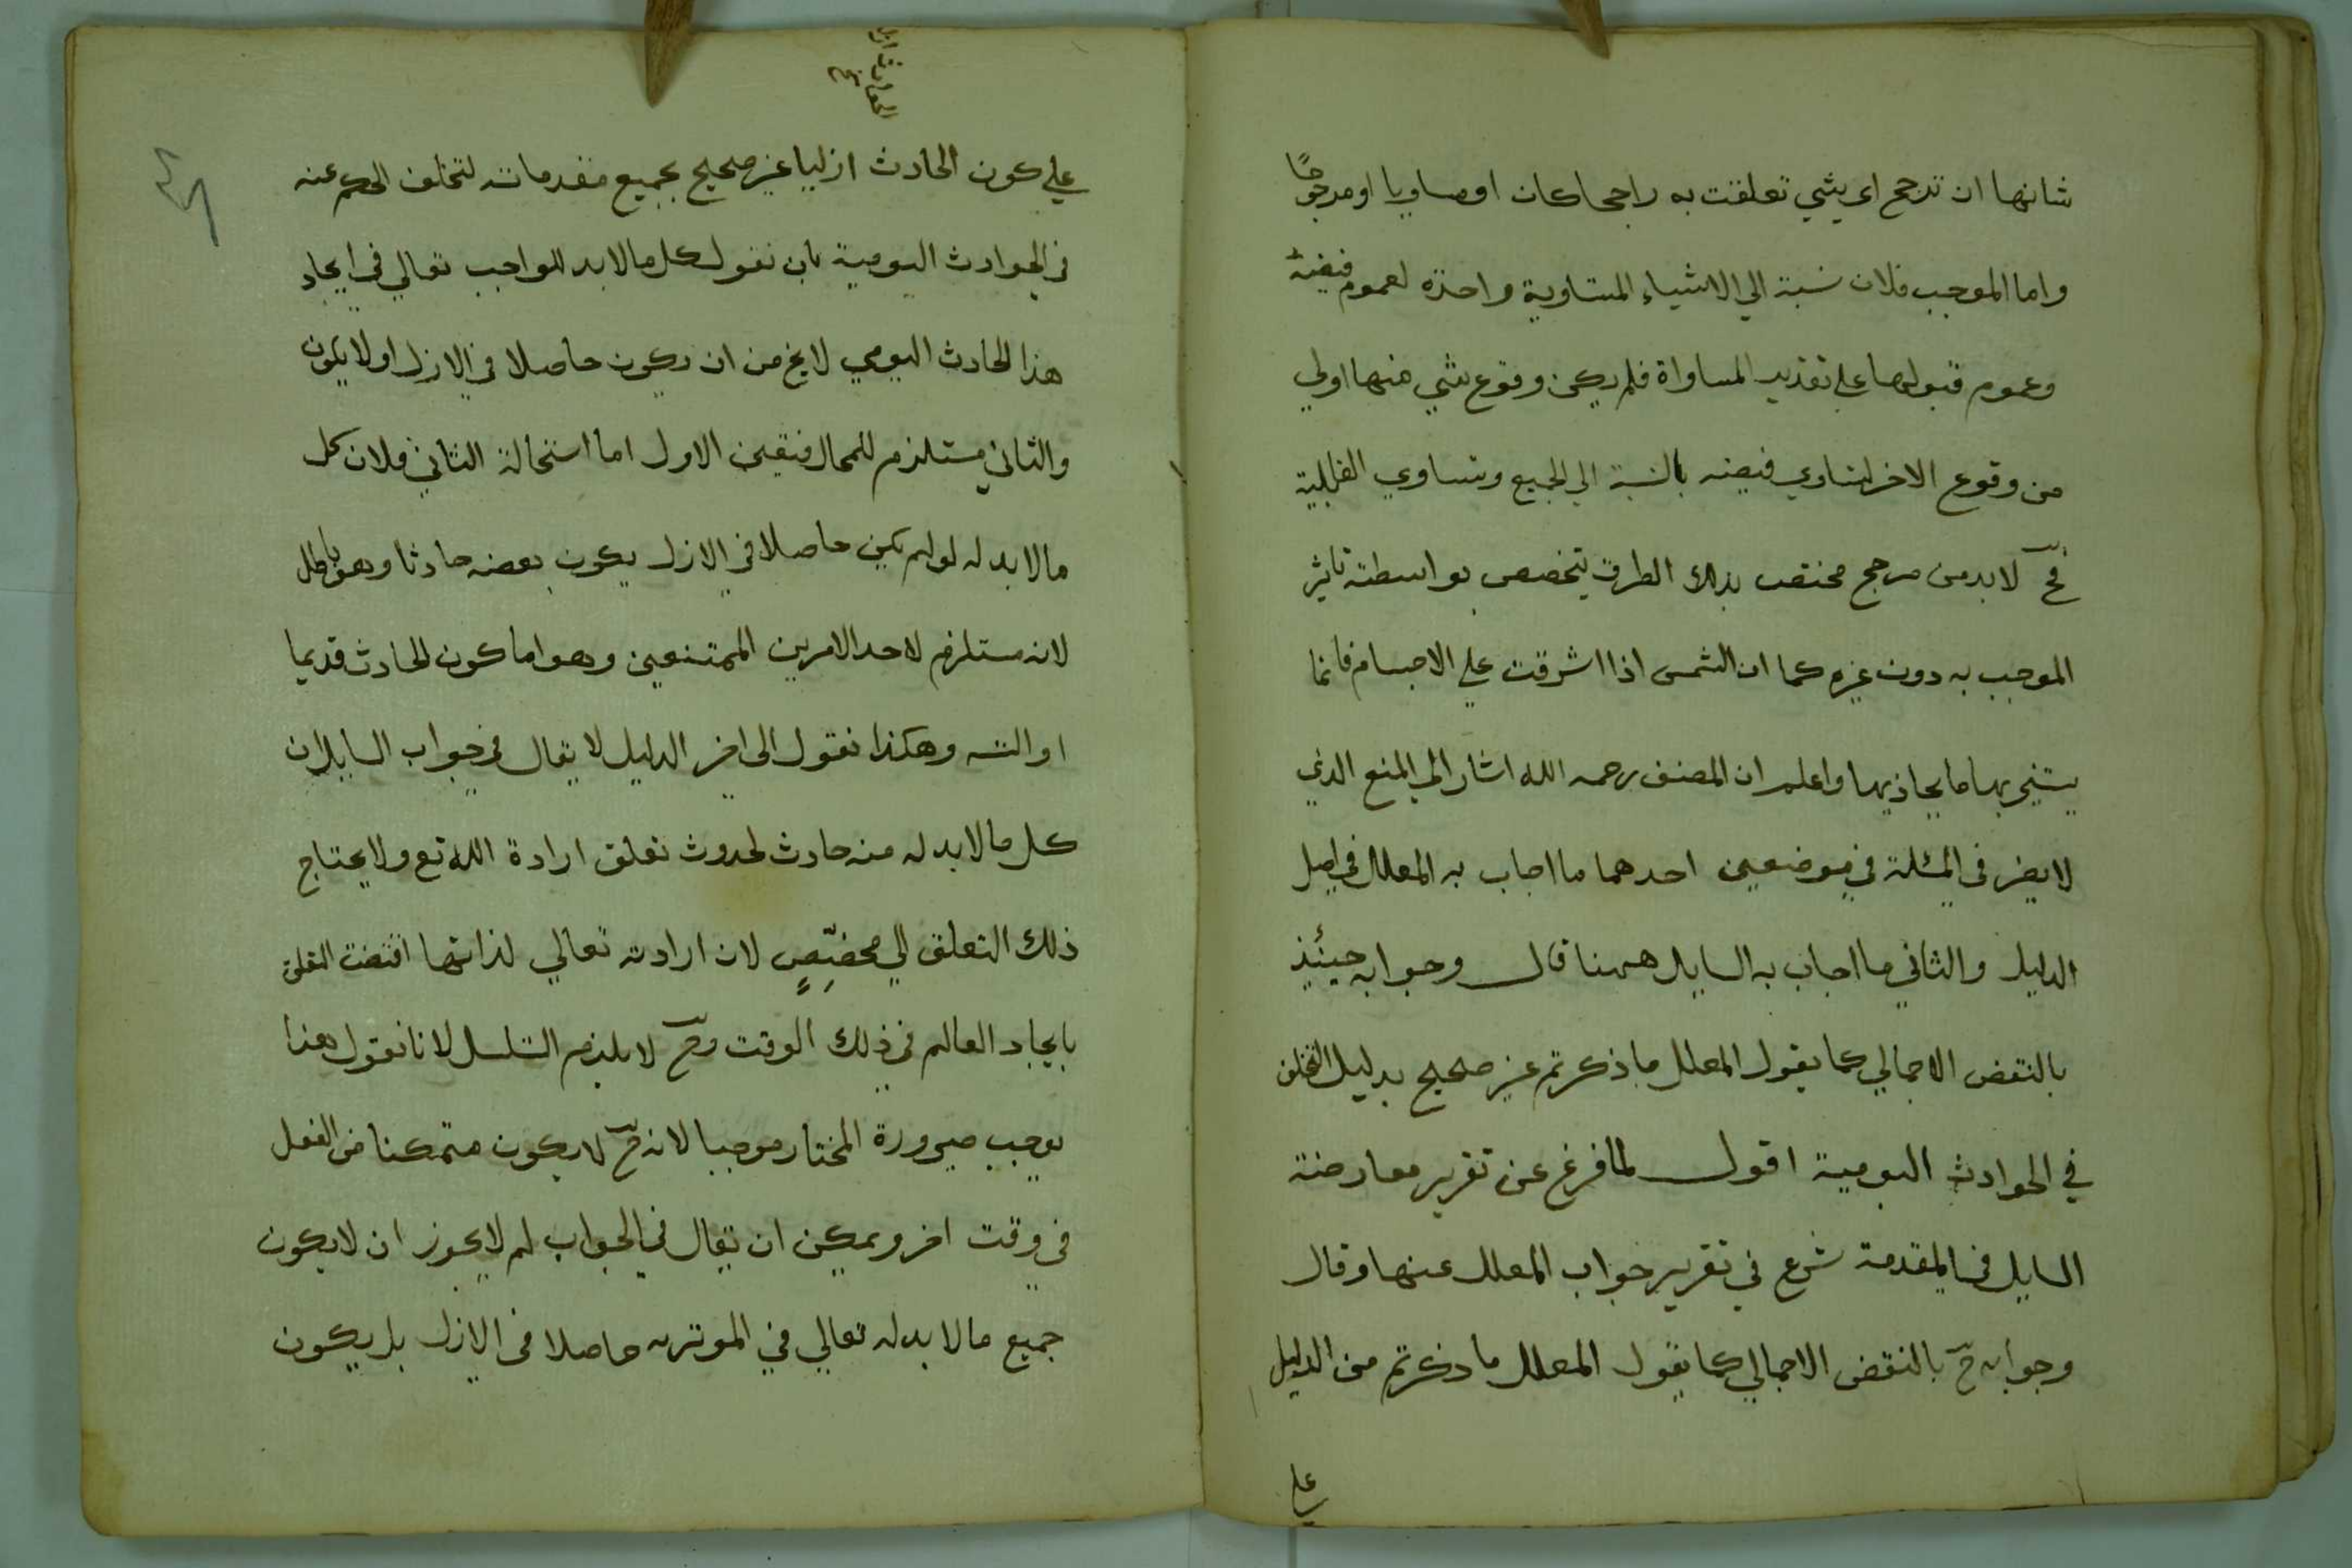 شانها ان ترجح اى شي تعلقت به راجحا كان او مساويا او مرجوحًا
واما الموجب فلان نسبة الي الاشياء المتساوية واحدة لعموم فيضه
وعموم قبولها علي تقدير المساواة فلم يكن وقوع شي منها اولي
من وقوع الاخر لتساوي فيضه بالنسبة الي الجميع وتساوي القابلية
فح لا بد من مرجح مختص بذلك الطرف يتخصص بواسطته تاثير
الموجب به دون غيره كما ان الشمس اذا اشرقت علي الاجسام فانما
يستنير بها ما يحاذيها واعلم ان المصنف رحمه الله اشار الي المنع الذي
لا يضر في المسئلة في موضعين احدهما ما اجاب به المعلل في اصل
الدليل والثاني ما اجاب به السايل ههنا قال وجوابه حينئذ
بالنقض الاجمالي كما يقول المعلل ما ذكرتم غير صحيح بدليل التخلف
في الحوادث اليومية اقول لما فرغ عن تقرير معارضة
السايل في المقدمة شرع في تقرير جواب المعلل عنها وقال
وجوابه ح بالنقض الاجمالي كما يقول المعلل ما ذكرتم من الدليل
علي
علي كون الحادث ازليا غير صحيح بجميع مقدماته لتخلف الحكم عنه
في الحوادث اليومية بان نقول كل ما لا بد للواجب تعالي في ايجاد
هذا الحادث اليومي لا يخ من ان يكون حاصلا في الازل او لا يكون
والثاني مستلزم للمحال فتعين الاول اما استحالة الثاني فلان كل
ما لا بد له لو لم يكن حاصلا في الازل يكون بعضه حادثا وهو باطل
لانه مستلزم لاحد الامرين الممتنعين وهو اما كون الحادث قديما
او التسـ وهكذا نقول الى اخر الدليل لا يقال في جواب السايل ان
كل ما لا بد له منه حادث لحدوث تعلق ارادة الله تع ولا يحتاج
ذلك التعلق الي مخصِّصٍ لان ارادته تعالي لذاتها اقتضت التعلق
بايجاد العالم في ذلك الوقت وح لا يلزم التسلسل لانا نقول هذا
يوجب صيرورة المختار موجبا لانه ح لا يكون متمكنا من الفعل
في وقت اخر ويمكن ان يقال في الجواب لم لا يجوز ان لا يكون
جميع ما لا بد له تعالي في الموثريه حاصلا في الازل بل يكون